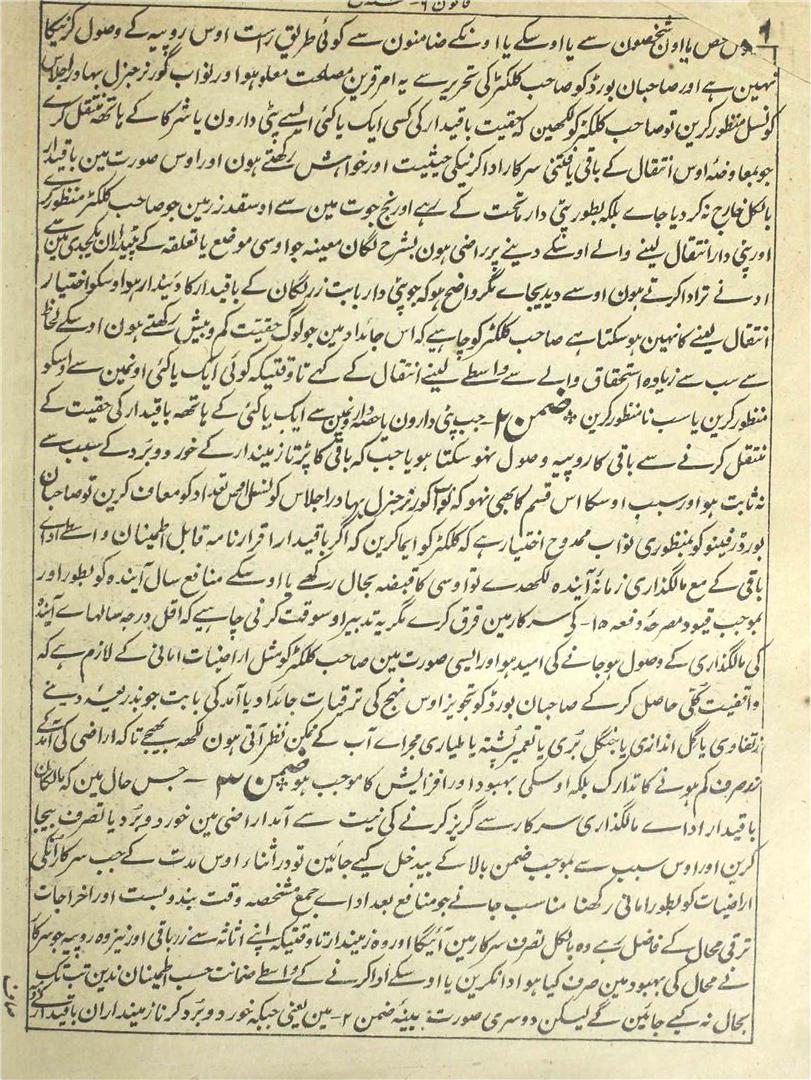 شخص یا اون شخصون سے یا اوسکے یا اونکے ضامنون سے کوئی طریق راست اوس روپیہ کے وصول کرنیکا
نہین ہے اور صاحبان بورڈ کو صاحب کلکٹر کی تحریر سے یہ امر قرین مصلحت معلوم ہو اور نواب گورنر جنرل بہادر اجلاس
کونسل منظور کرین تو صاحب کلکٹر کو لکھین کہ حقیت باقیدار کی کسی ایک یا کئی ایسے پٹی دارون یا شرکا کے ہاتھہ منتقل کرے
جو بمعاوضۂ اوس انتقال کے باقی یافتنی سرکار ادا کرنیکی حیثیت اور خواہش رکھتے ہون اور اوس صورت مین باقیدار
بالکل خارج نہ کر دیا جاے بلکہ بطور پٹی دار ماتحت کے رہے اور نج جوت مین سے اوسقدر زمین جو صاحب کلکٹر منظور کرے
اور پٹی دار انتقال لینے والے اوسکے دینے پر راضی ہون بشرح لگان معینہ جو اوسی موضع یا تعلقہ کے پٹیداران یکجدی مین سے
ادنے تر ادا کرتے ہون اوسے دیدیجاے مگر واضح ہو کہ جو پٹی دار بابت زر لگان کے باقیدار کا دیندار ہو اوسکو اختیار
انتقال لینے کا نہین ہو سکتا ہے صاحب کلکٹر کو چاہیے کہ اس جائداد مین جو لوگ حقیت کم و بیش رکھتے ہون اوسکے لحاظ
سے سب سے زیادہ استحقاق والے سے واسطے لینے انتقال کے کہے تاوقتیکہ کوئی ایک یا کئی اونمین سے اوسکو
منظور کرین یا سب نامنظور کرین * ضمن ۲ - جب پٹی دارون یا حصہ دارونمین سے ایک یا کئی کے ہاتھہ باقیدار کی حقیت کے
منتقل کرنے سے باقی کا روپیہ وصول نہو سکتا ہو یا جب کہ باقی کا پڑنا زمیندار کے خورد وبرد کے سبب سے
نہ ثابت ہو اور سبب اوسکا اس قسم کا بھی نہو کہ نواب گورنر جنرل بہادر اجلاس کونسل اوس تعداد کو معاف کرین تو صاحبان
بورڈ رفینو کو بمنظوری نواب ممدوح اختیار ہے کہ کلکٹر کو ایما کرین کہ اگر باقیدار اقرار نامہ قابل اطمینان واسطے اداے
باقی کے مع مالگذاری زمانۂ آیندہ لکھدے تو اوسی کا قبضہ بحال رکھے یا اوسکے منافع سال آیندہ کو بطور اور
بموجب قیود مصرحۂ دفعہ ۱۵ - کے سرکار مین قرق کرے مگر یہ تدبیر اوسوقت کرنی چاہیے کہ اقل درجہ سالہاے آیندہ
کی مالگذاری کے وصول ہو جانے کی امید ہو اور ایسی صورت مین صاحب کلکٹر کو مثل اراضیات امانی کے لازم ہے کہ
واقفیت کلی حاصل کر کے صاحبان بورڈ کو تجویز اوس نہج کی ترقیات جائداد یا آمد کی بابت جو بذریعۂ دینے
زر تقاوی یا گل اندازی یا جنگل بری یا تعمیر پشتہ یا طیاری مجراے آب کے ممکن نظر آتی ہون لکھہ بھیجے تاکہ اراضی کی آمد کے
نہ صرف کم ہونے کا تدارک بلکہ اوسکی بہبود اور افزایش کا موجب ہو ضمن ۳ - جس حال مین کہ مالکان
باقیدار اداے مالگذاری سرکار سے گریز کرنے کی نیت سے آمد اراضی مین خورد وبرد یا تصرف بیجا
کرین اور اوس سبب سے بموجب ضمن بالا کے بیدخل کیے جائین تو در اثناء اوس مدت کے جب سرکار اونکی
اراضیات کو بطور امانی رکھنا مناسب جانے جو منافع بعد اداے جمع مشخصہ وقت بندوبست اور اخراجات
ترقی محال کے فاضل رہے وہ بالکل تصرف سرکار مین آئیگا اور وہ زمیندار تاوقتیکہ اپنے اثاثہ سے زر باقی اور نیز وہ روپیہ جو سرکار
نے محال کی بہبود مین صرف کیا ہو ادا نکرین یا اوسکے ادا کرنے کے واسطے ضمانت حسب اطمینان ندین تب تک
بحال نہ کیے جائین گے لیکن دوسری صورت مبینۂ ضمن ۲ - مین یعنی جبکہ خورد وبرد کرنا زمینداران باقیدار کے